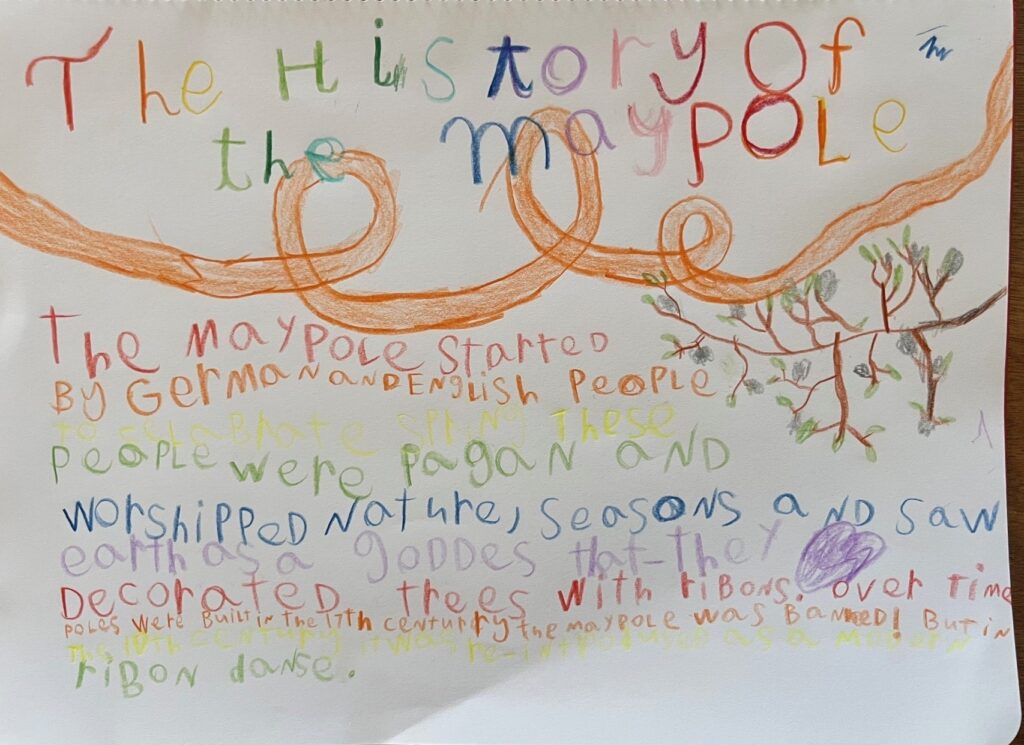 The History Of
the maypole
The MAYPOLE STARTED
BY GERMAN AND ENGlish PEOPLE
to celabrate spring These
PEOPLE were PAGAN AND
WOrSHIPPED NATUre, SEASONS AND SAW
earth as a GODDES that they
DECORATED trees WITH RIBONS. OVER TIME
POLES WERE BUILT IN THE 17TH CENTURRY THE MAYPOLE WAS BANNED! BUT IN
THE 19TH CENTURY IT WAS re-introdused as a MODERN
riBON danse.